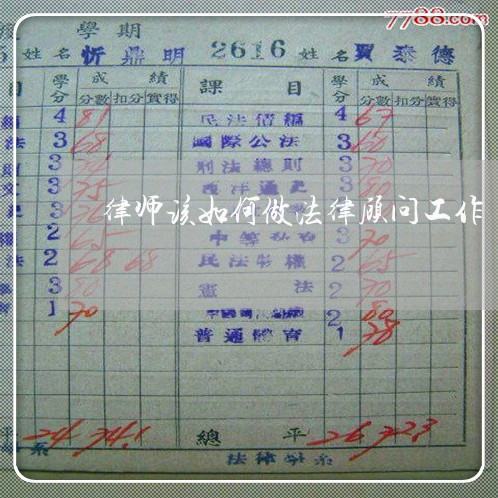 7788.com
學期
姓名 忻鼎明 2616 姓名 賈泰德
目 學分 成績 課目 學分 成績
分數 扣分 實得 分數 扣分 實得
4 81 民法債編 4 67
法 3 68 國際公法 3 60
3 刑法總則 3 70
3 75 西洋通史 3 80
律师该如何做法律顾问工作
2 65 3 70
法 2 68 68 民法物權 2 65
3 80 憲法 2 70
1 70 2 80
普通體育 1 78
平 24 74.1 總平 26 72.3
系 法律學系